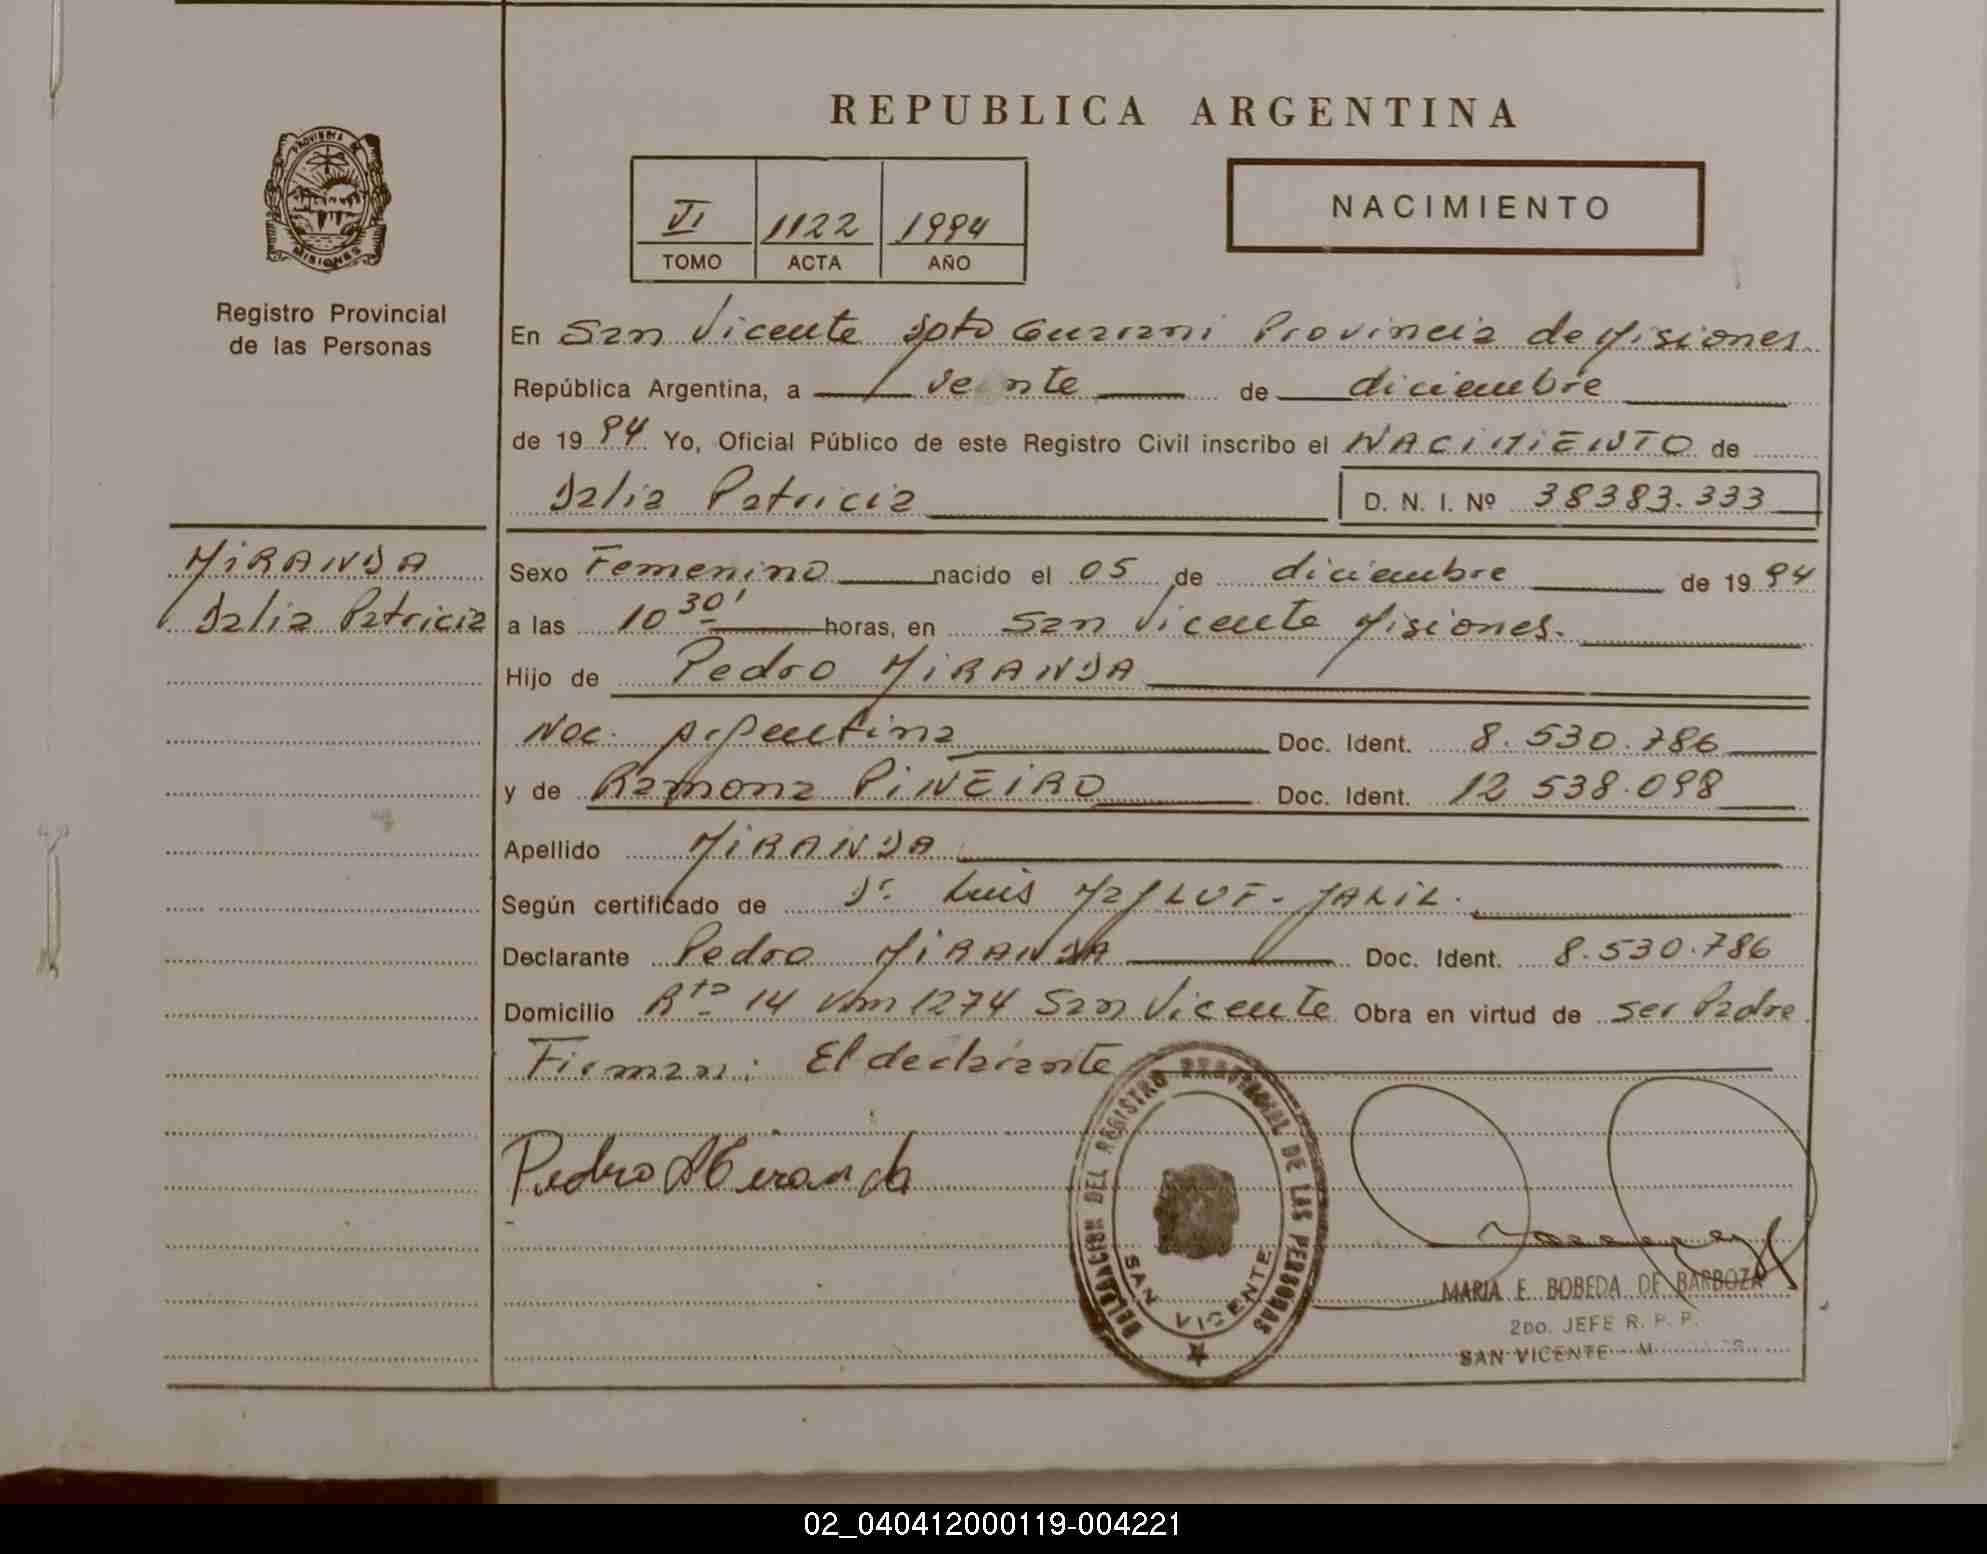 REPUBLICA ARGENTINA
PROVINCIA DE
MISIONES
Registro Provincial
de las Personas
VI 1122 1994
TOMO ACTA AÑO
NACIMIENTO
En San Vicente Dpto Guarani Provincia de Misiones
República Argentina, a veinte de diciembre
de 1994 Yo, Oficial Público de este Registro Civil inscribo el NACIMIENTO de
Dalia Patricia D. N. I. Nº 38383.333
MIRANDA
Dalia Patricia
Sexo Femenino nacido el 05 de diciembre de 1994
a las 10 30' horas, en San Vicente Misiones.
Hijo de Pedro MIRANDA
Nac. Argentina Doc. Ident. 8.530.786
y de Ramona PIÑEIRO Doc. Ident. 12 538.098
Apellido MIRANDA
Según certificado de Dr. Luis JALIL.
Declarante Pedro MIRANDA Doc. Ident. 8.530.786
Domicilio Rta 14 Km 1274 San Vicente Obra en virtud de ser Padre
Firman: El declarante
Pedro Miranda
DELEGACION DEL REGISTRO PROVINCIAL DE LAS PERSONAS
SAN VICENTE
MARIA E. BOBEDA DE BARBOZA
2DO. JEFE R. P. P.
SAN VICENTE
02_040412000119-004221